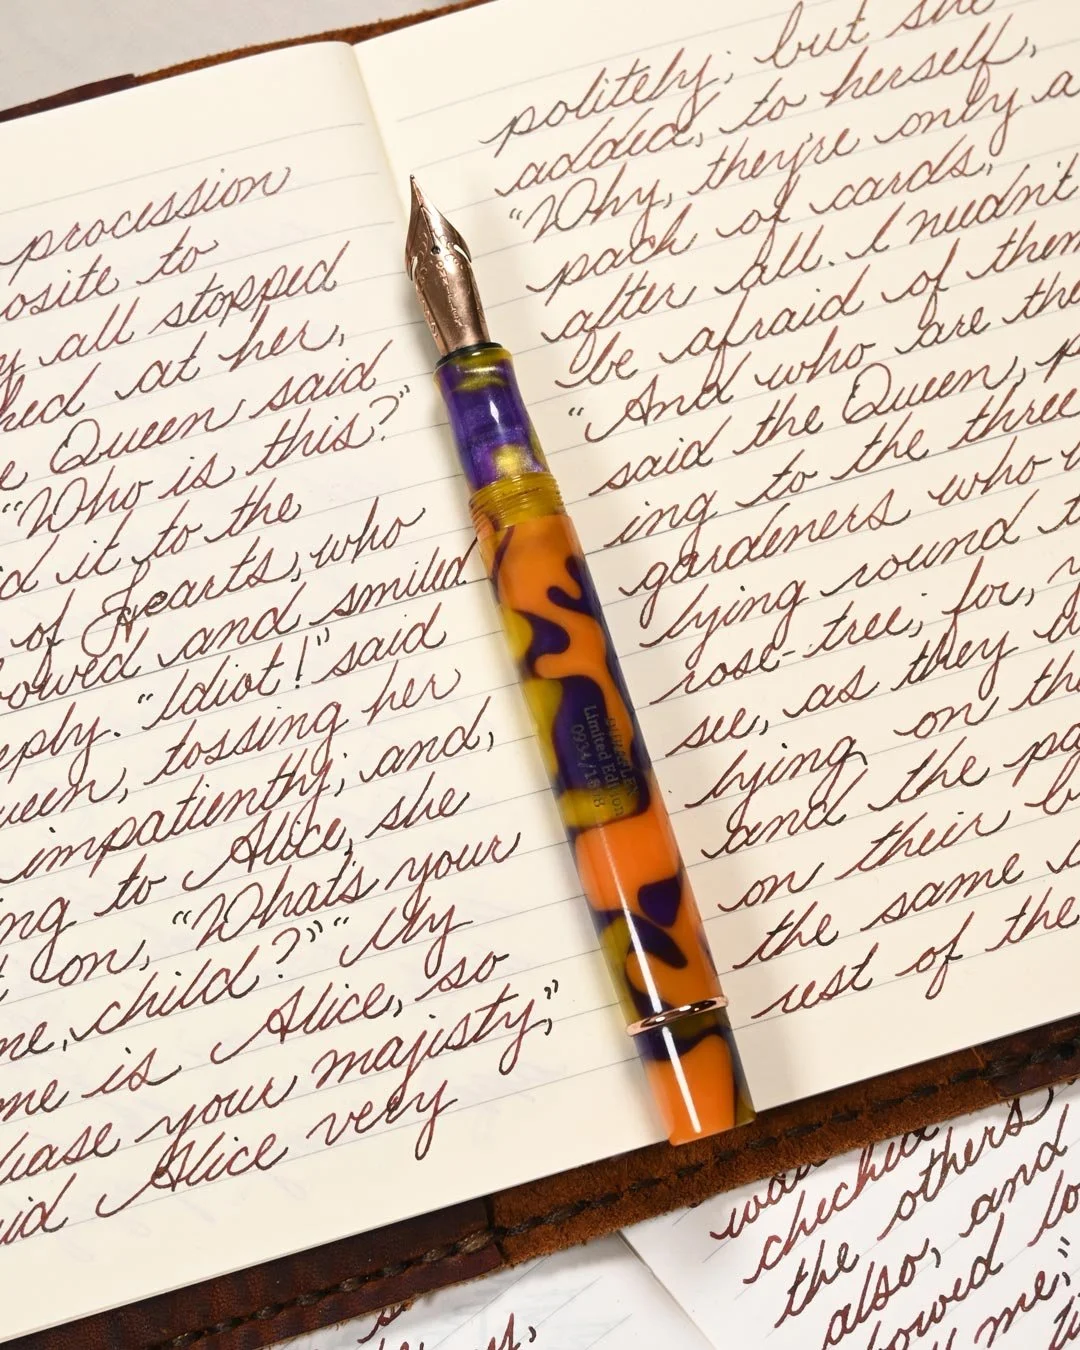 procession
osite to
all stopped
at her,
Queen said
"Who is this?"
it to the
of Hearts, who
owed and smiled
"Idiot!" said
tossing her
impatiently; and,
ing to Alice, she
on, "What's your
me, child?" "My
me is Alice, so
ease your majesty,"
aid Alice very
politely; but she
added, to herself,
"Why, they're only a
pack of cards,
after all. I needn't
be afraid of them
"And who are the
said the Queen, p
ing to the three
gardeners who w
lying round t
rose-tree; for, y
see, as they w
lying on the
and the pa
on their b
the same a
rest of the
Limited Edition
0934/1898
checked
the others
also, and
bowed lo
me,"